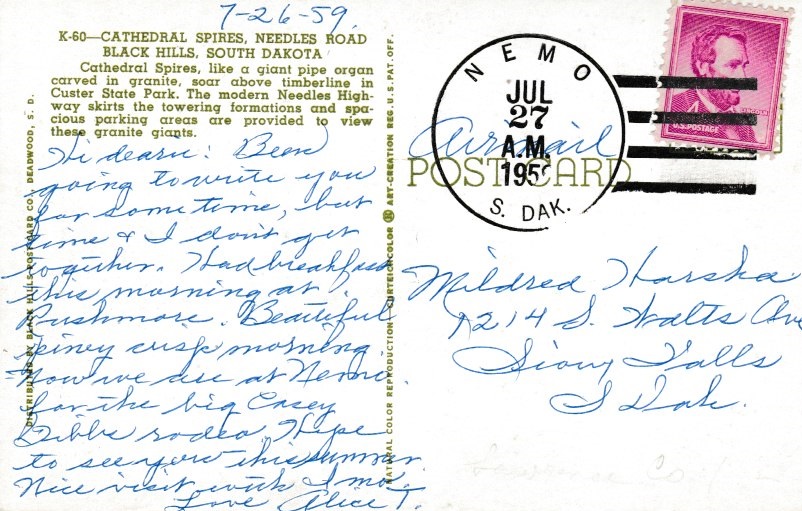 7-26-59.
K-60—CATHEDRAL SPIRES, NEEDLES ROAD
BLACK HILLS, SOUTH DAKOTA
Cathedral Spires, like a giant pipe organ
carved in granite, soar above timberline in
Custer State Park. The modern Needles High-
way skirts the towering formations and spa-
cious parking areas are provided to view
these granite giants.
Hi dearie! Been
going to write you
for some time, but
time & I don't get
together. Had breakfast
this morning at
Rushmore. Beautiful
piney crisp morning.
Now we are at Nemo
for the big Casey
Tibbs rodeo. Hope
to see you this summer.
Nice visit with I ma.
Love Alice T.
DISTRIBUTED BY BLACK HILLS POST CARD CO., DEADWOOD, S. D.
NATURAL COLOR REPRODUCTION CURTEICHCOLOR ART-CREATION REG. U.S. PAT. OFF.
NEMO
JUL
27
A.M.
1959
S. DAK.
U.S. POSTAGE
Airmail
POST CARD
Mildred Harsha
1214 S. Walts Ave
Sioux Falls
S Dak.